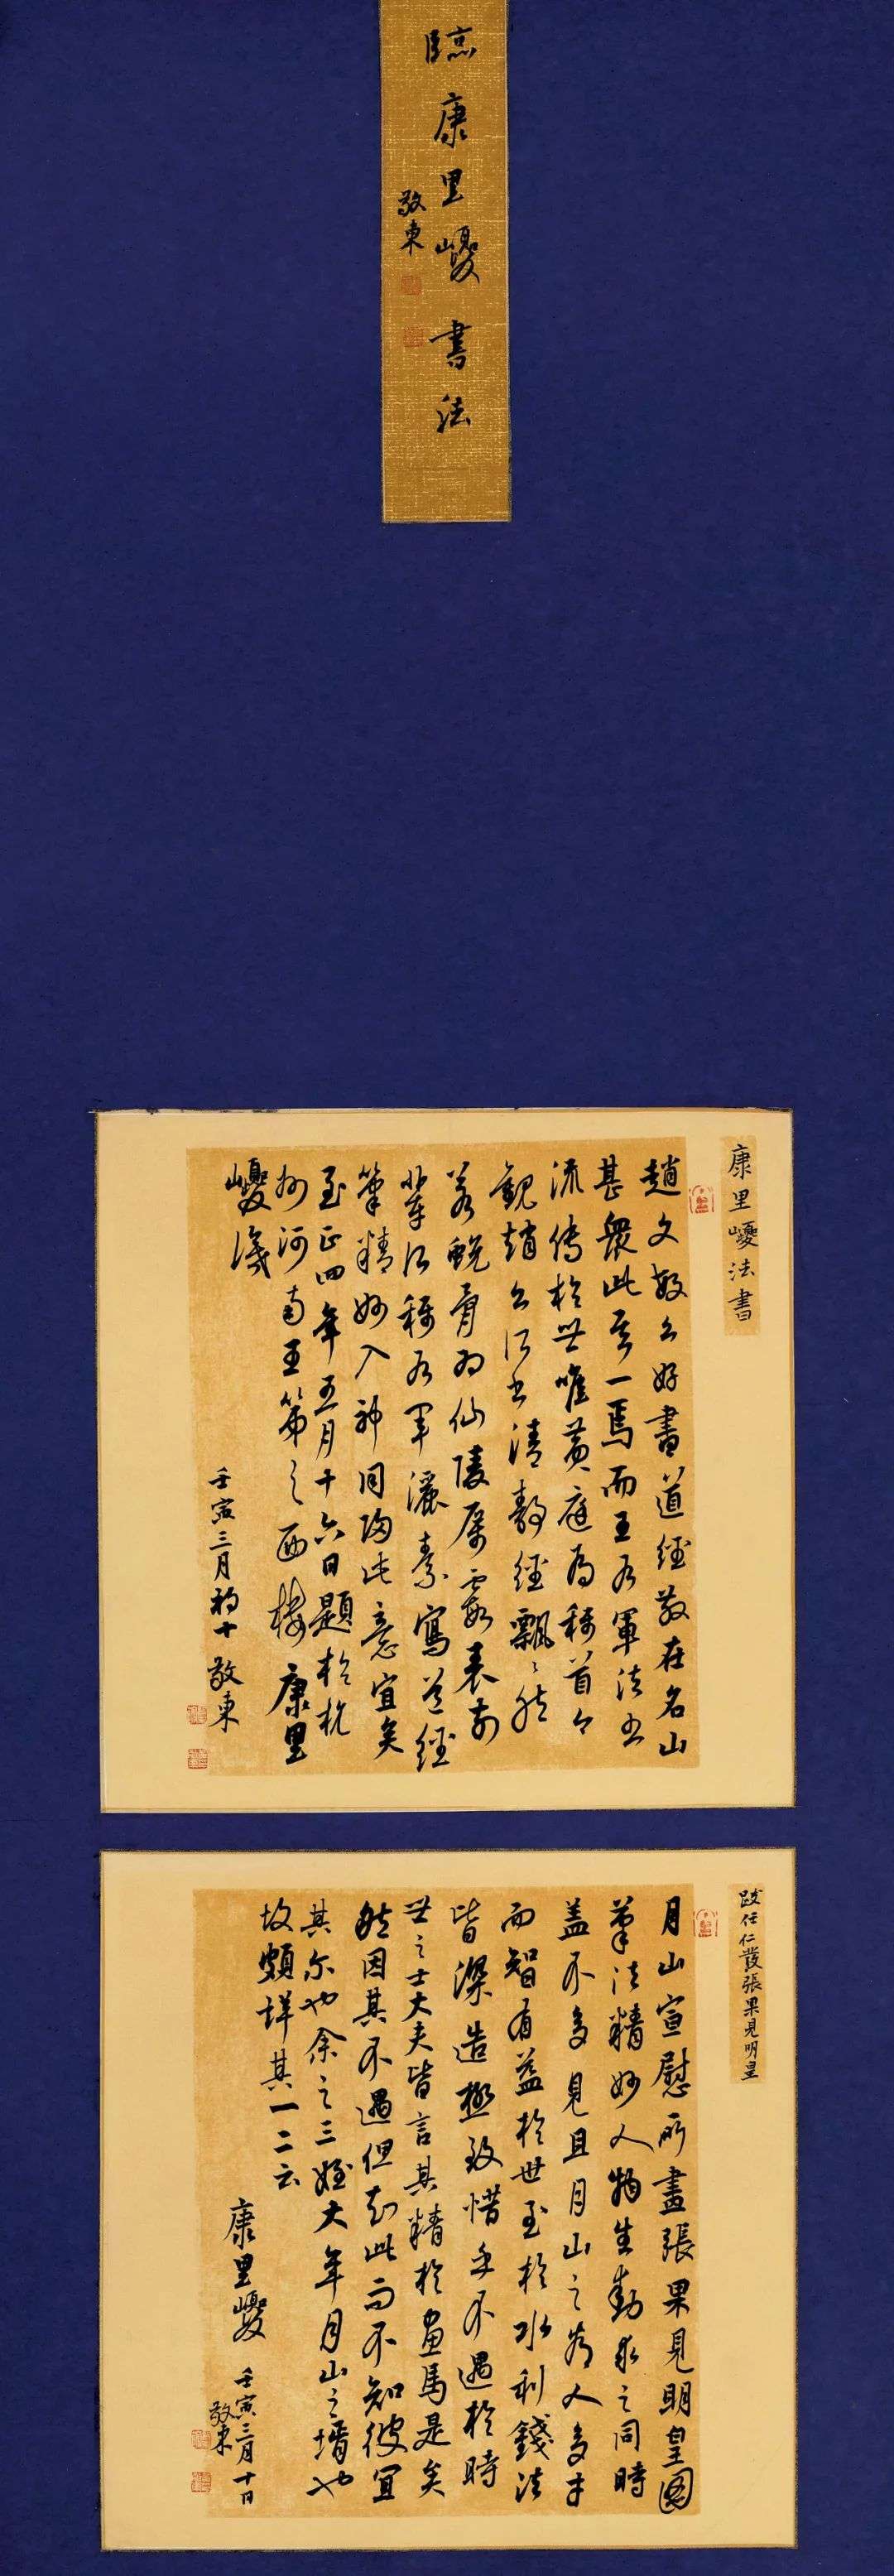 臨康里巎書法
敬東
康里巎法書
趙文敏公好書道經散在名山
甚衆此其一焉而王右軍法書
流傳於世唯黃庭為稱首今
觀趙公所書清靜經飄飄然
若蛻骨為仙陵厲霞表前
輩所稱右軍灑素寫道經
筆精妙入神同得此意宜矣
至正四年五月十六日題於杭
州河南王第之西樓康里
巎識
壬寅三月初十敬東
跋任仁發張果見明皇
月山宣慰所畫張果見明皇圖
筆法精妙人物生動求之同時
蓋不多見且月山之為人多才
而智有益於世至於水利錢法
皆深造極致惜乎不遇於時
世之士大夫皆言其精於畫馬是矣
然因其不遇但知此而不知彼宜
其尔也余之三姪大年月山之壻也
故頗詳其一二云
康里巎
壬寅三月十日
敬東